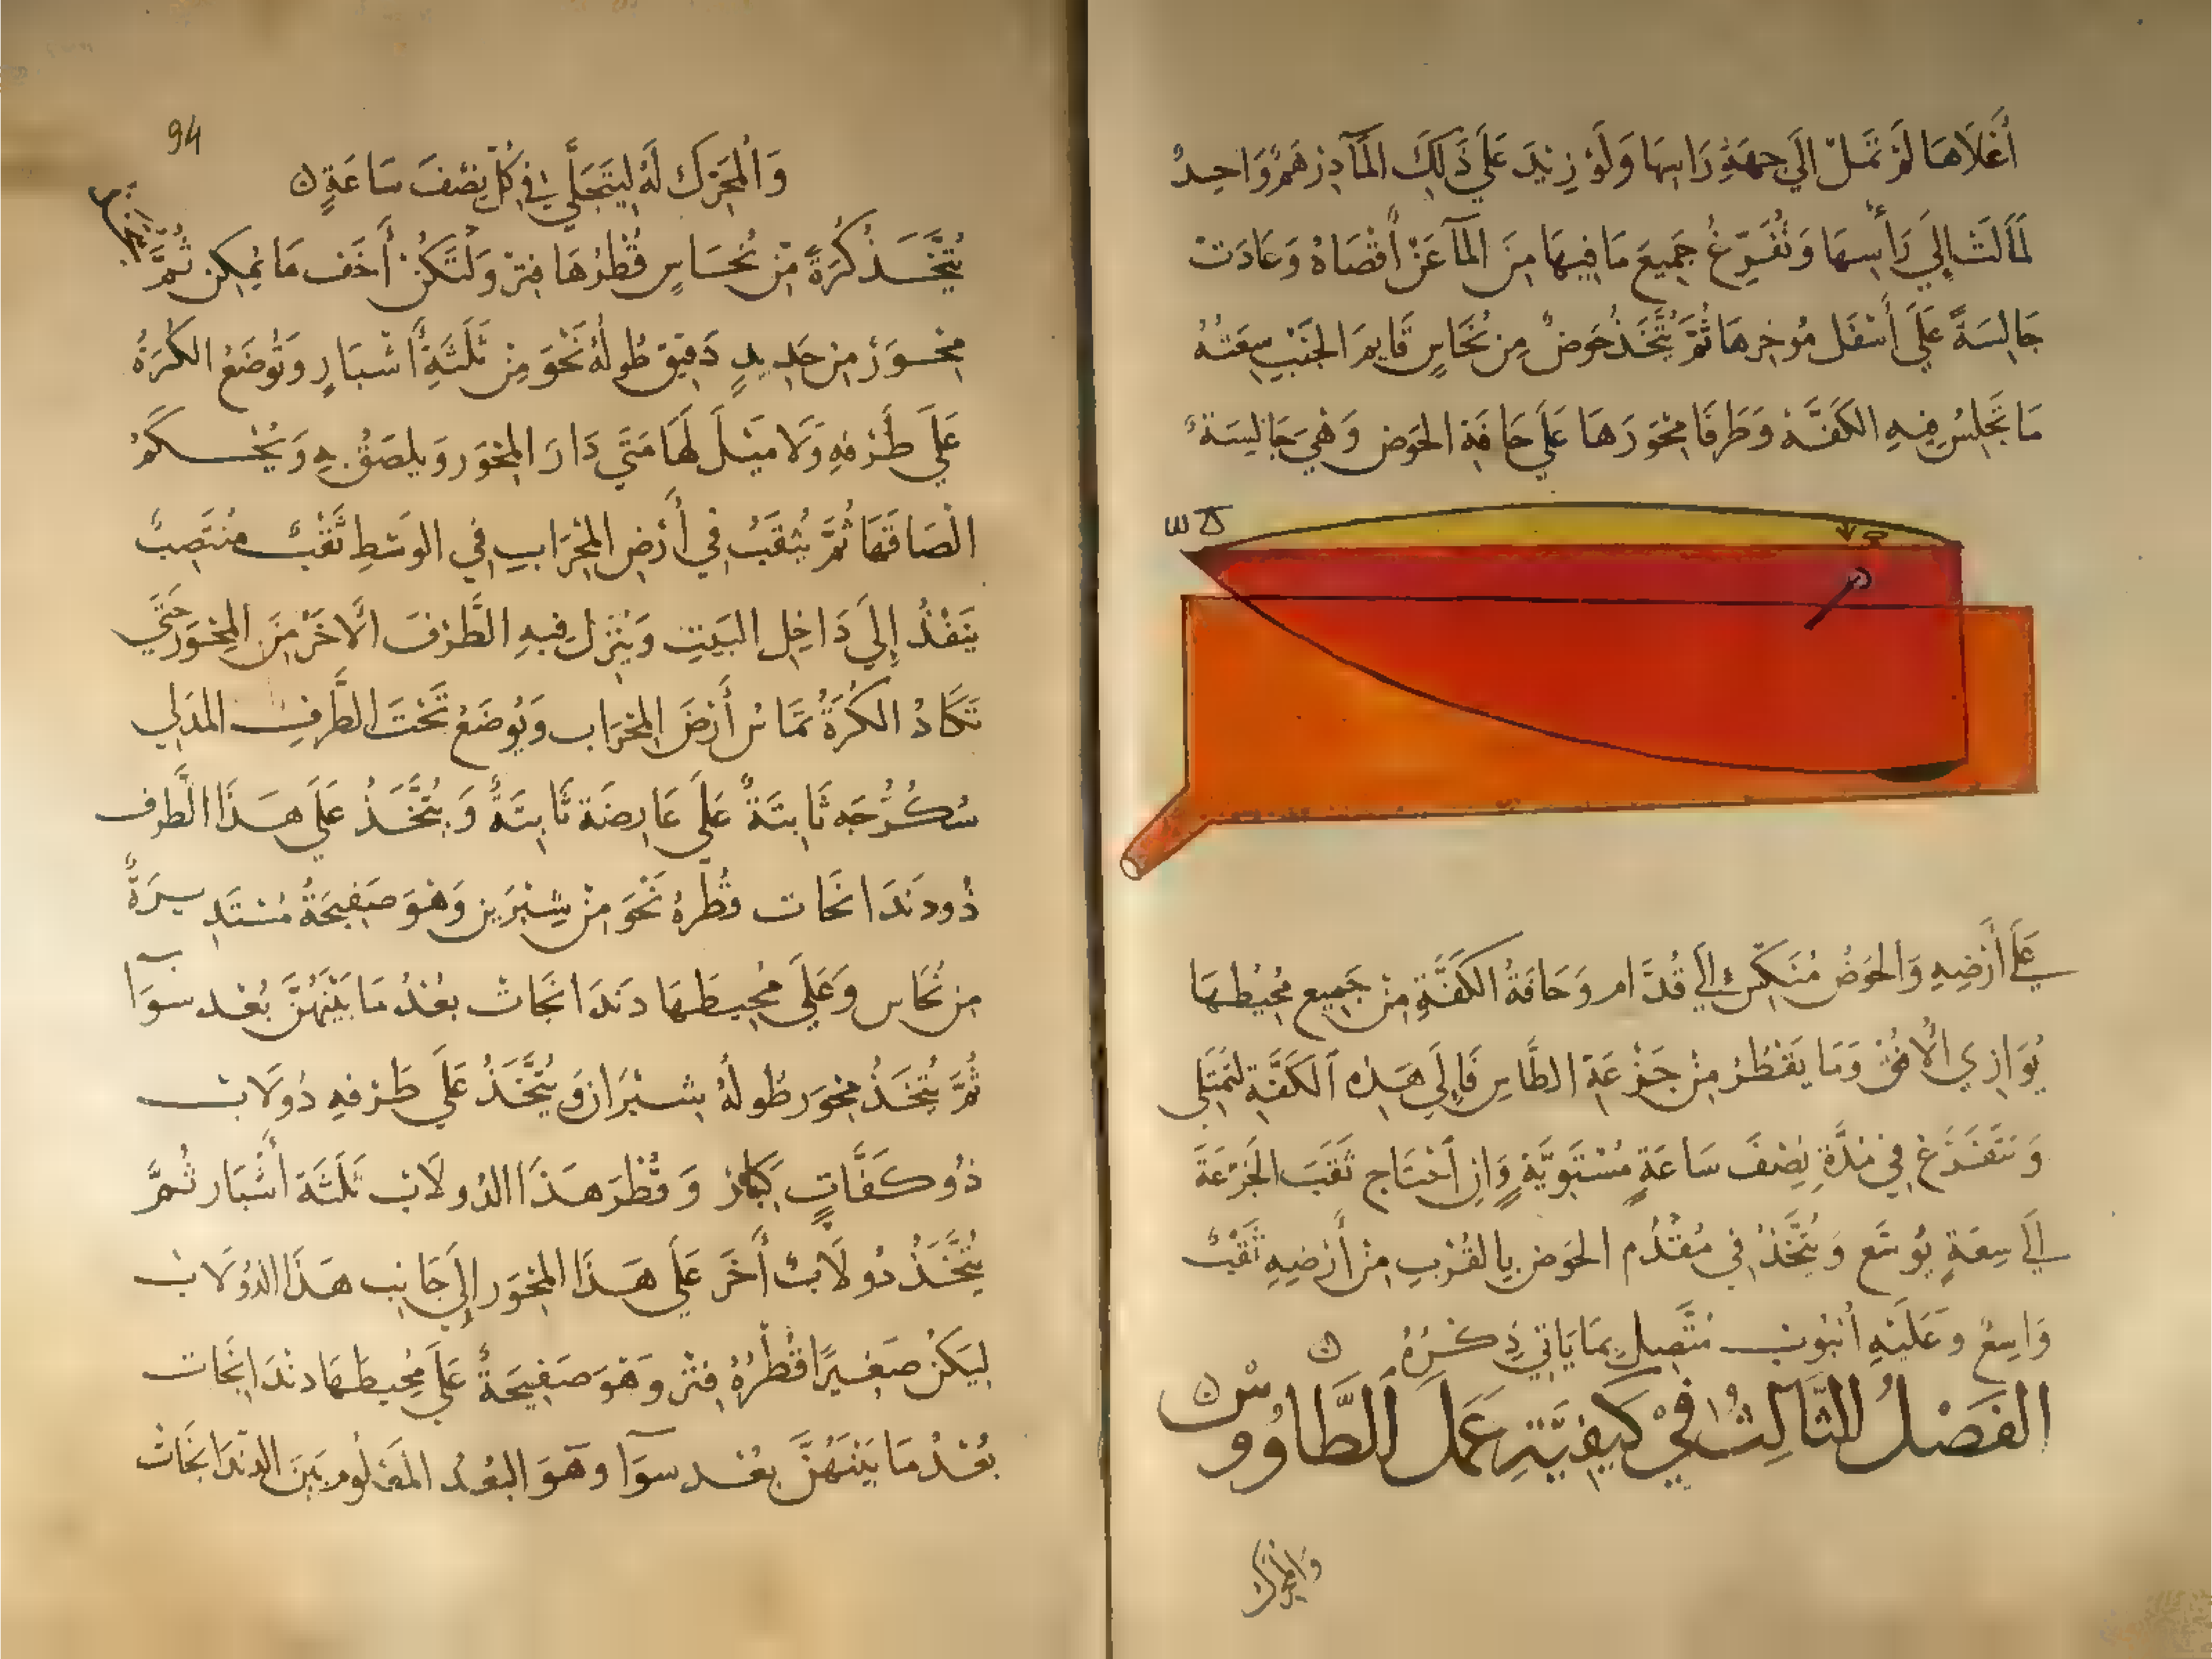 أَعْلَاهَا لَمْ تَمَلْ إِلَى جِهَةِ رَاسِهَا وَلَوْ زِيدَ عَلَى ذَلِكَ المَآ دِرْهَمٌ وَاحِدٌ
لَمَالَتْ إِلَى رَأْسِهَا وَتُفَرِّغُ جَمِيعَ مَا فِيهَا مِنَ المَآ عَنْ أَقْصَاهُ وَعَادَتْ
جَالِسَةً عَلَى أَسْفَل مُوخرِهَا ثُمَّ يُتَّخَذُ حَوضٌ مِن نُحَاسٍ قَايِم الجَنْبِ سِعَتُهُ
مَا تَجْلِسُ فِيهِ الكَفَّة وَطَرفَا مِحْوَرَهَا عَلَى حَافَةِ الحَوض وَهْيَ جَالِسَة
عَلَى أَرْضِهِ وَالحَوضُ مُنَكِّسٌ إِلَى قُدَّام وَحَافَةُ الكَفَّةِ مِنْ جَمِيعِ مُحِيْطِهَا
يُوَازِي الأُفُق وَمَا يَقْطُر مِنْ جَزْعَةِ الطَّاسِ فَإِلَى هَذِهِ الكَفَّةِ لِتَمْتَلِي
وَتَتَفَرَّغ فِي مُدَّةِ نِصْفَ سَاعَةٍ مُسْتَوِيَّةٍ وَإِن احْتَاج ثَقبَ الجَزْعَةَ
إِلَى سِعَةٍ يُوسَّع وَيُتَّخَذُ فِي مُقَدَّم الحَوض بِالقُرْبِ مِنْ أَرْضِهِ ثَقْبٌ
وَاسِعٌ وَعَلَيْهِ أُنبُوبٌ مُتَّصِل بِمَا يَاتِي ذِكْرُهُ ن
الفَصْلُ الثَّالِثُ فِي كَيْفِيَّةِ عَمَلِ الطَّاوُوسْ ن
وَالمحَرك
94
وَالمُحَرِّك لَهُ لِيَتَجَلَّى فِي كُلِّ نِصْفَ سَاعَةٍ ن
يُتَّخَذ كُرَةً مِنْ نُحَاسٍ قُطْرُهَا فِتْرٌ وَلْتَكُنْ أَخَف مَا يُمكِن ثُمَّ
مِحْوَرٌ مِنْ حَدِيدٍ دَقِيق طُولُهُ نَحْوَ مِنْ ثَلَثَةِ أَشْبَارٍ وَتُوضَعُ الكُرَةُ
عَلَى طَرْفِهِ وَلَا مَيْلَ لَهَا مَتَى دَارَ المِحْوَر وَيلصَقُ بِهِ وَيُحْكَمُ
الْصَاقَهَا ثُمَّ يُثْقَبُ فِي أَرْضِ المِحْرَابِ فِي الوَسَطِ ثَقْبٌ مُنْتَصِبٌ
يَنفُذُ إِلَى دَاخِل البَيتِ وَيُنزل فِيهِ الطَّرْفَ الاخَر مِنَ المِحْوَر حَتَّى
تَكَادُ الكُرَةُ تَمَاسُ أَرْضَ المِحْرَاب وَيُوضَعُ تَحْتَ الطَّرفِ المدَلى
سُكُرُّجَه ثَابِتَةٌ عَلَى عَارِضَة ثَابِتَةٍ وَيُتَّخَذُ عَلَى هَذَا الطَّرف
ذُو دَنْدَانجَات قُطْرُهُ نَحْوَ مِنْ شِبْرَين وَهُوَ صَفِيحَةٌ مُسْتَدِيرَةٌ
مِن نُحَاس وَعَلَى مُحِيطِهَا دَنْدَانجَاتْ بُعْدُ مَا بَيْنَهُنَّ بُعْد سوَآ
ثُمَّ يُتَّخَذُ مِحْوَر طُولُهُ شِبْرَان وَيُتَّخَذُ عَلَى طَرْفِهِ دُولَابٌ
ذُو كَفَّاتٍ كِبَار وَقُطْرَ هَذَا الدُولَابْ ثَلَثَة أَشْبَار ثُمَّ
يُتَّخَذُ دُولَابٌ أَخَر عَلَى هَذَا المِحْوَر إِلَى جَانِب هَذَا الدُولَاب
لِيَكُنْ صَغِيرًا قُطْرُهُ فِتْر وَهُوَ صَفِيحَةٌ عَلَى مُحِيطِهَا دَنْدَانجَات
بُعْدُ مَا بَيْنَهُنَّ بُعْد سوَآ وَهوَ البُعْدُ المَعْلُوم بَينَ الدنْدَانجَاتْ